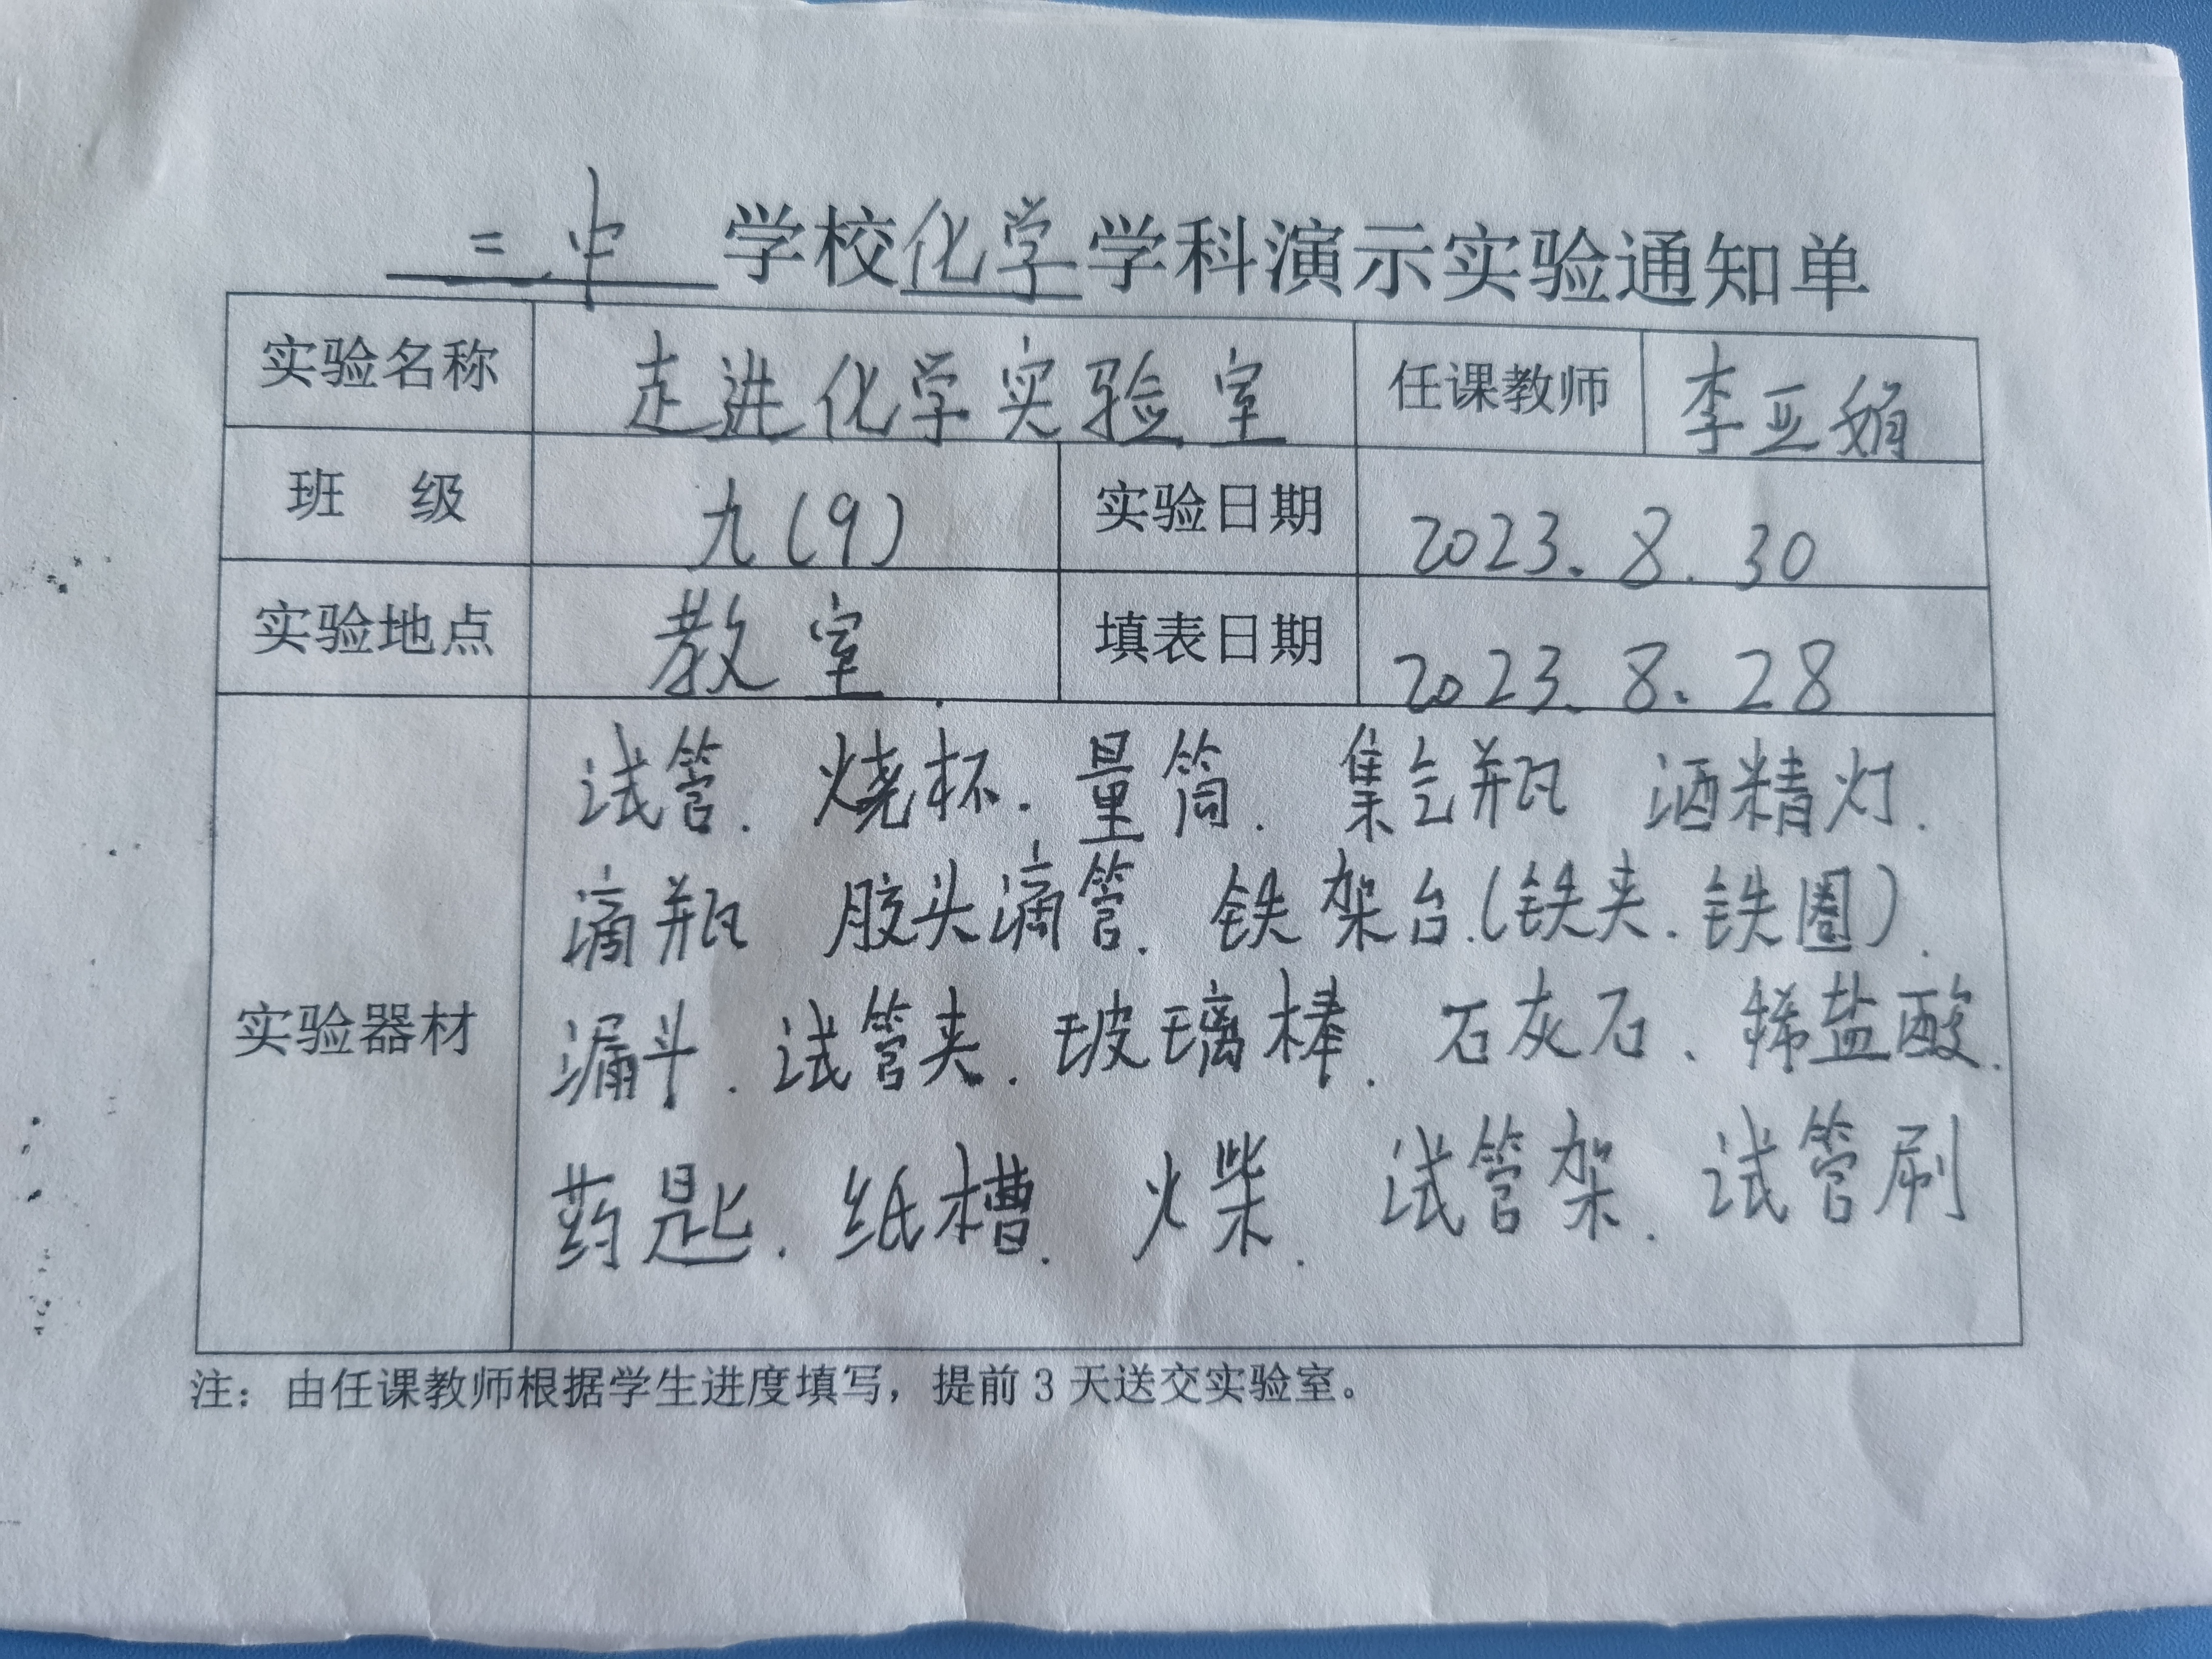 三中学校化学学科演示实验通知单
实验名称 走进化学实验室 任课教师 李亚娟
班 级 九(9) 实验日期 2023.8.30
实验地点 教室 填表日期 2023.8.28
实验器材
试管.烧杯.量筒.集气瓶 酒精灯.
滴瓶 胶头滴管.铁架台.(铁夹.铁圈).
漏斗.试管夹.玻璃棒.石灰石、稀盐酸.
药匙.纸槽.火柴.试管架.试管刷
注：由任课教师根据学生进度填写，提前3天送交实验室。